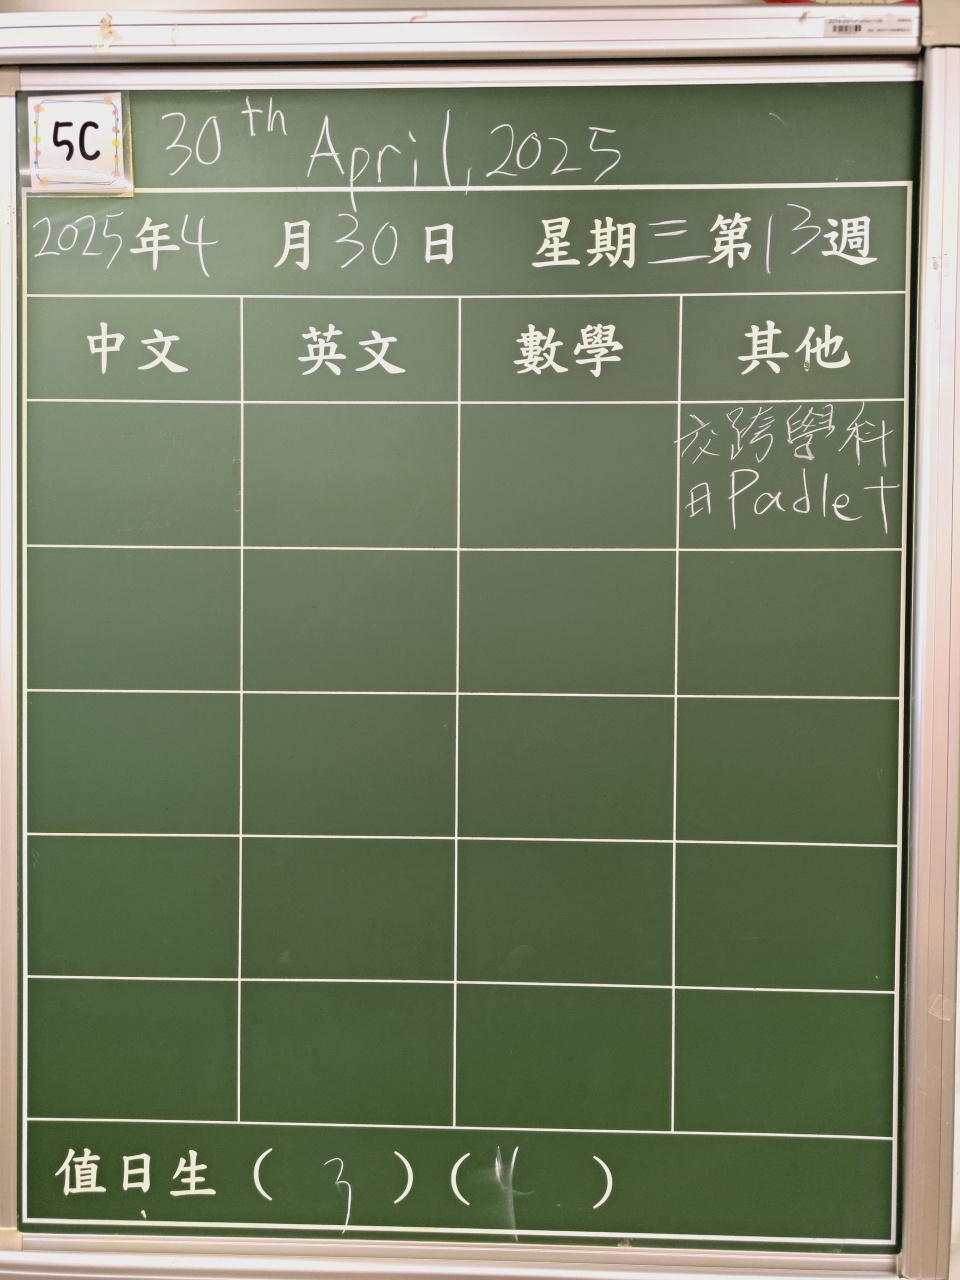 5C
30th April, 2025
2025年4月30日 星期三第13週
中文 英文 數學 其他
交跨學科
日Padlet
值日生（3）（4）